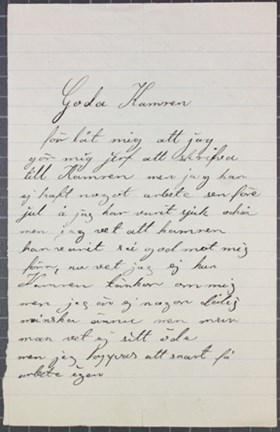 Goda Kamren
för låt mig att jag
gör mig jerf att skrifva
till Kamren men jag har
ej haft något arbete sen före
jul å jag har varit sjuk också
men jag vet att kamren
har varit så god mot mig
förr, nu vet jag ej hur
Kamren tänker om mig
men jag är ej någon dålig
mäniska ännu men mun
man vet ej sitt öde
men jag hoppas att snart få
arbete igen